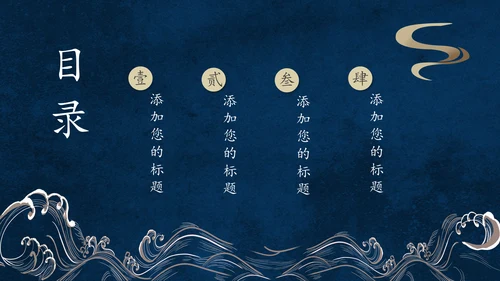 目录
壹
添加您的标题
贰
添加您的标题
叁
添加您的标题
肆
添加您的标题